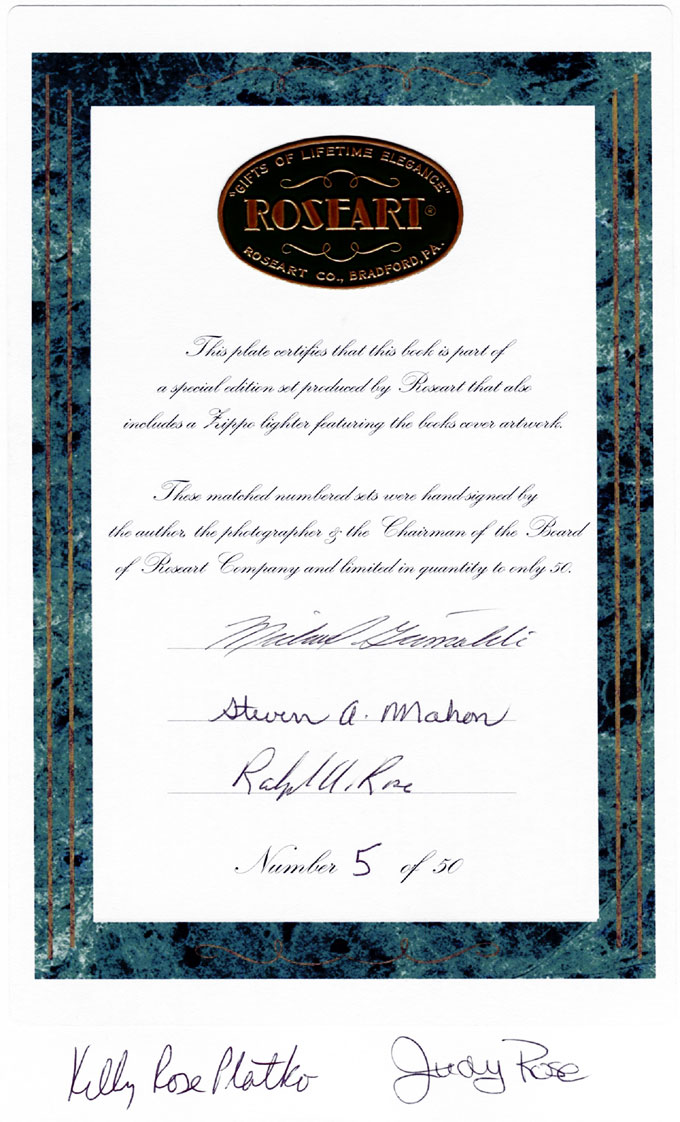 "GIFTS OF LIFETIME ELEGANCE"
ROSEART®
ROSEART CO., BRADFORD, PA.
This plate certifies that this book is part of
a special edition set produced by Roseart that also
includes a Zippo lighter featuring the books cover artwork.
These matched numbered sets were hand signed by
the author, the photographer & the Chairman of the Board
of Roseart Company and limited in quantity to only 50.
Michael Grimaldi
Steven A. Mahon
Ralph A. Rose
Number 5 of 50
Kelly Rose Platko
Judy Rose